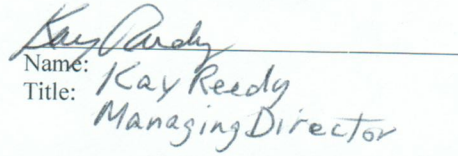 Kay Reedy
Name: Kay Reedy
Title: Managing Director